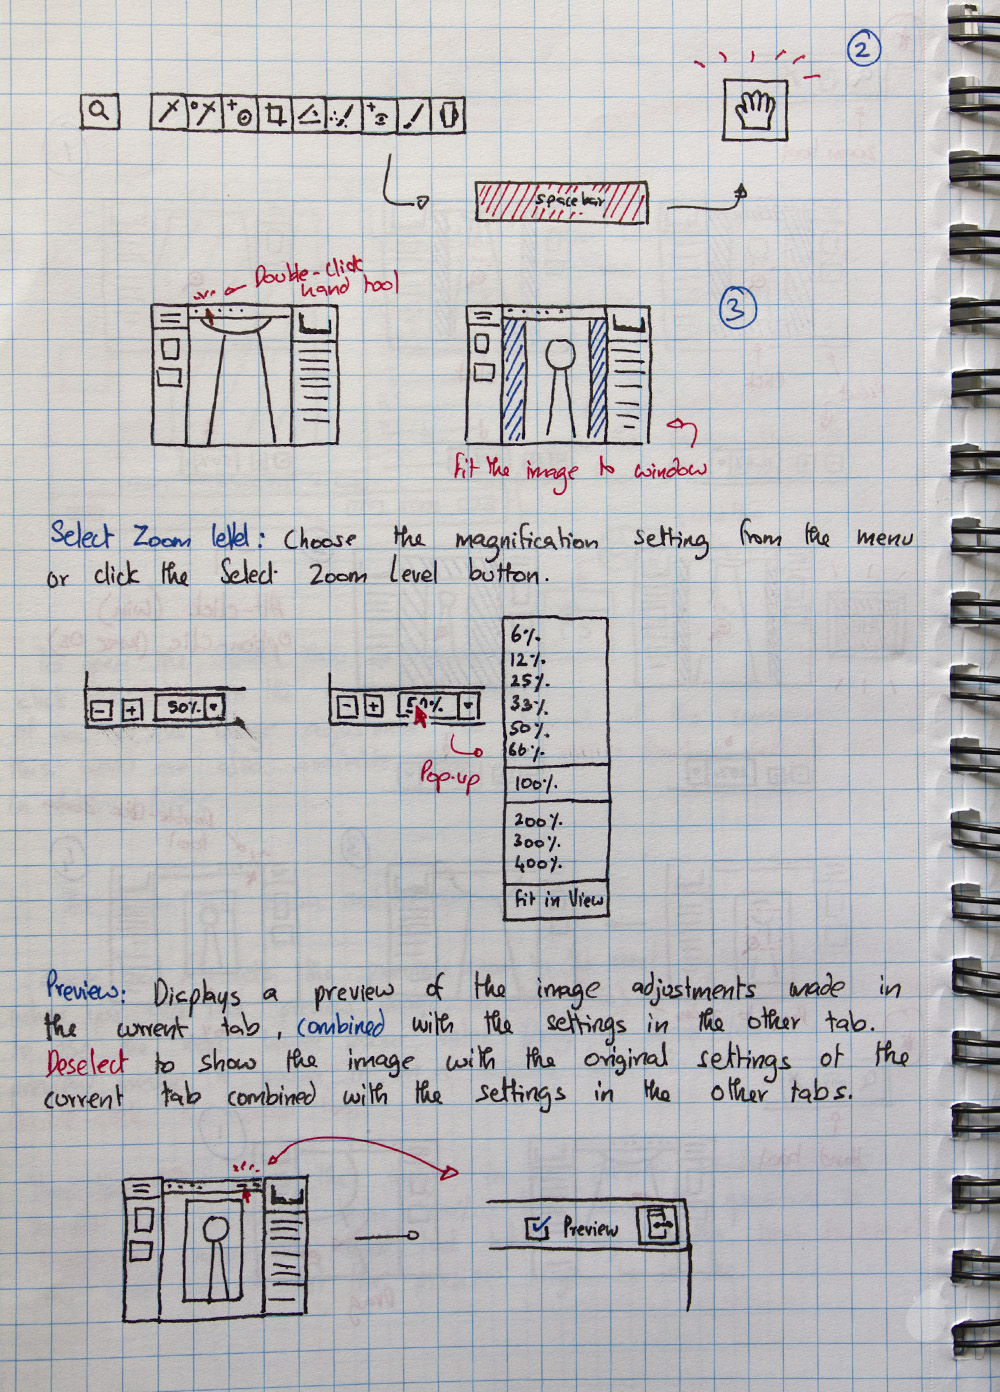 2
spacebar
Double-click
hand tool
3
Fit the image to window
Select Zoom level: Choose the magnification setting from the menu
or click the Select Zoom Level button.
6%
12%
25%
33%
50%
66%
100%
200%
300%
400%
Fit in View
50%
50%
Pop-up
Preview: Displays a preview of the image adjustments made in
the current tab, combined with the settings in the other tab.
Deselect to show the image with the original settings of the
current tab combined with the settings in the other tabs.
Preview